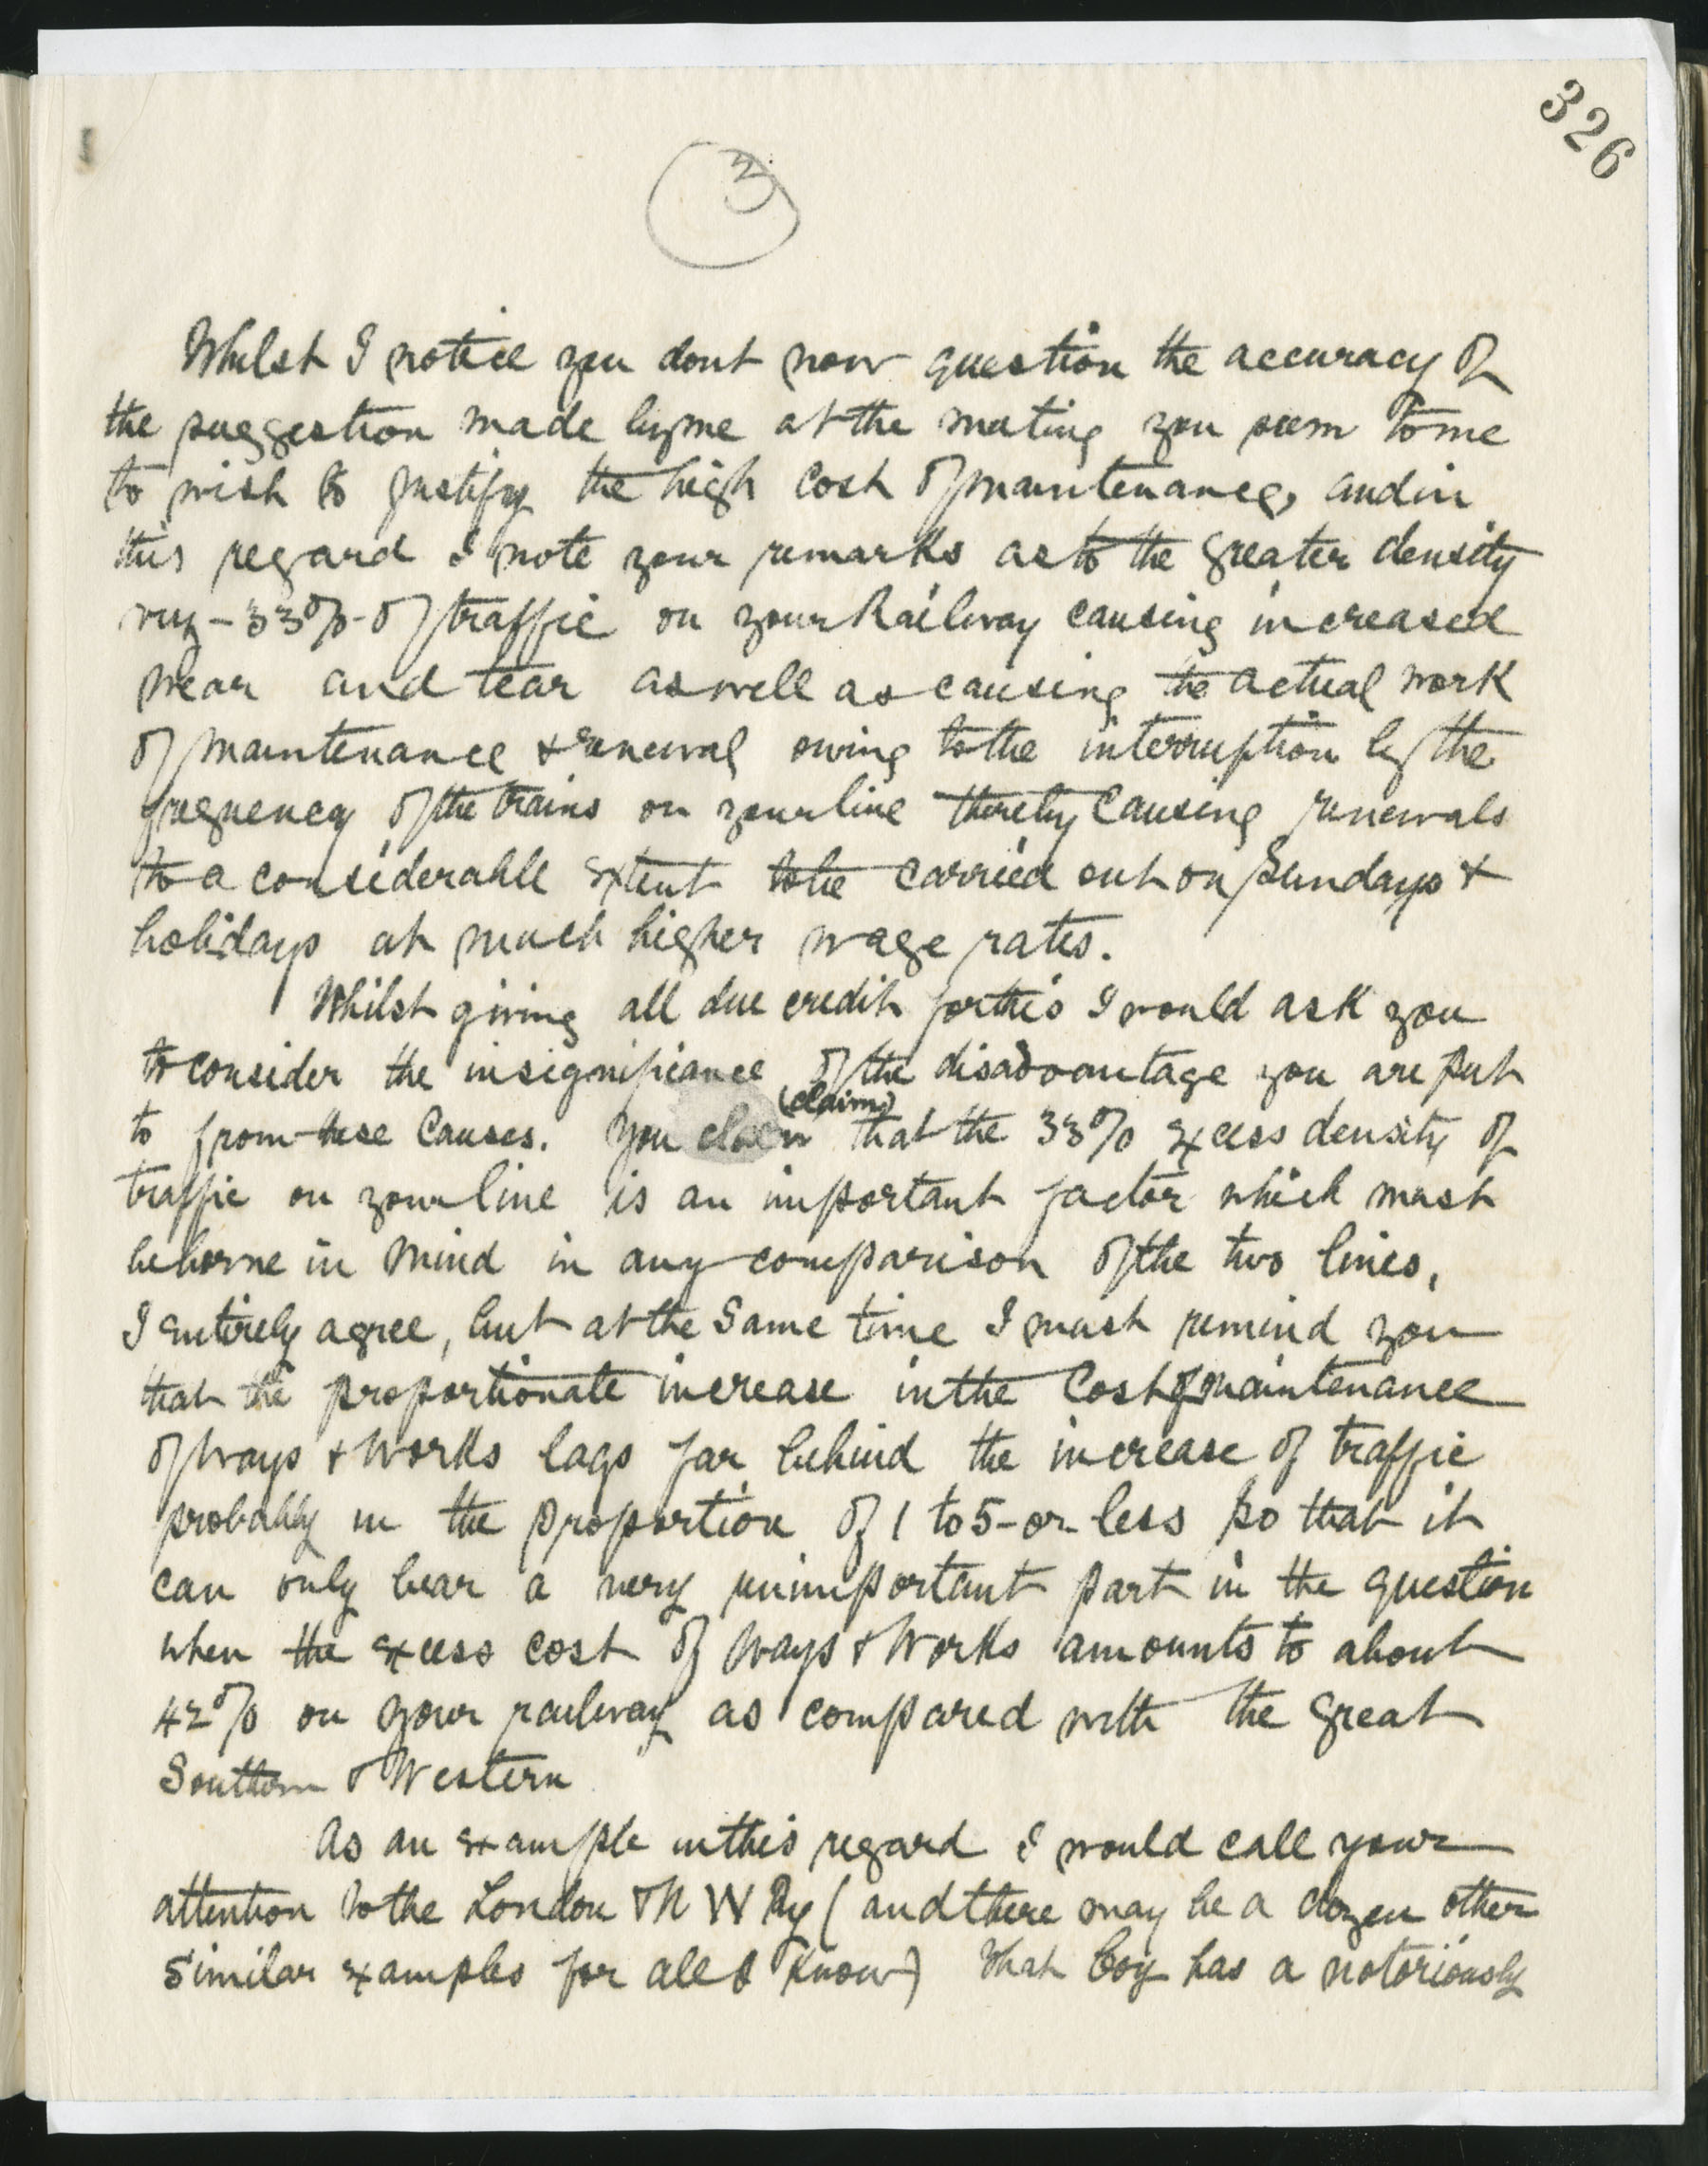 326
3
Whilst I notice you dont now question the accuracy of
the suggestion made by me at the meeting you seem to me
to wish to justify the high cost of maintenance, and in
this regard I note your remarks as to the greater density
viz - 33% - of traffic on your Railway causing increased
wear and tear as well as causing the actual work
of maintenance & renewal owing to the interruption by the
frequency of the trains on your line thereby causing renewals
to a considerable extent to be carried out on Sundays &
holidays at much higher wage rates.
Whilst giving all due credit for this I would ask you
to consider the insignificance of the disadvantage you are put
to from these causes. You claim (claim) that the 33% excess density of
traffic on your line is an important factor which must
be borne in mind in any comparison of the two lines,
I entirely agree, but at the same time I must remind you
that the proportionate increase in the cost of maintenance
of Ways & Works lags far behind the increase of traffic
probably in the proportion of 1 to 5 - or less so that it
can only bear a very unimportant part in the question
when the excess cost of Ways & Works amounts to about
42% on your railway as compared with the Great
Southern & Western
As an example in this regard I would call your
attention to the London & N W Ry (and there may be a dozen other
similar examples for all I know) that Coy has a notoriously